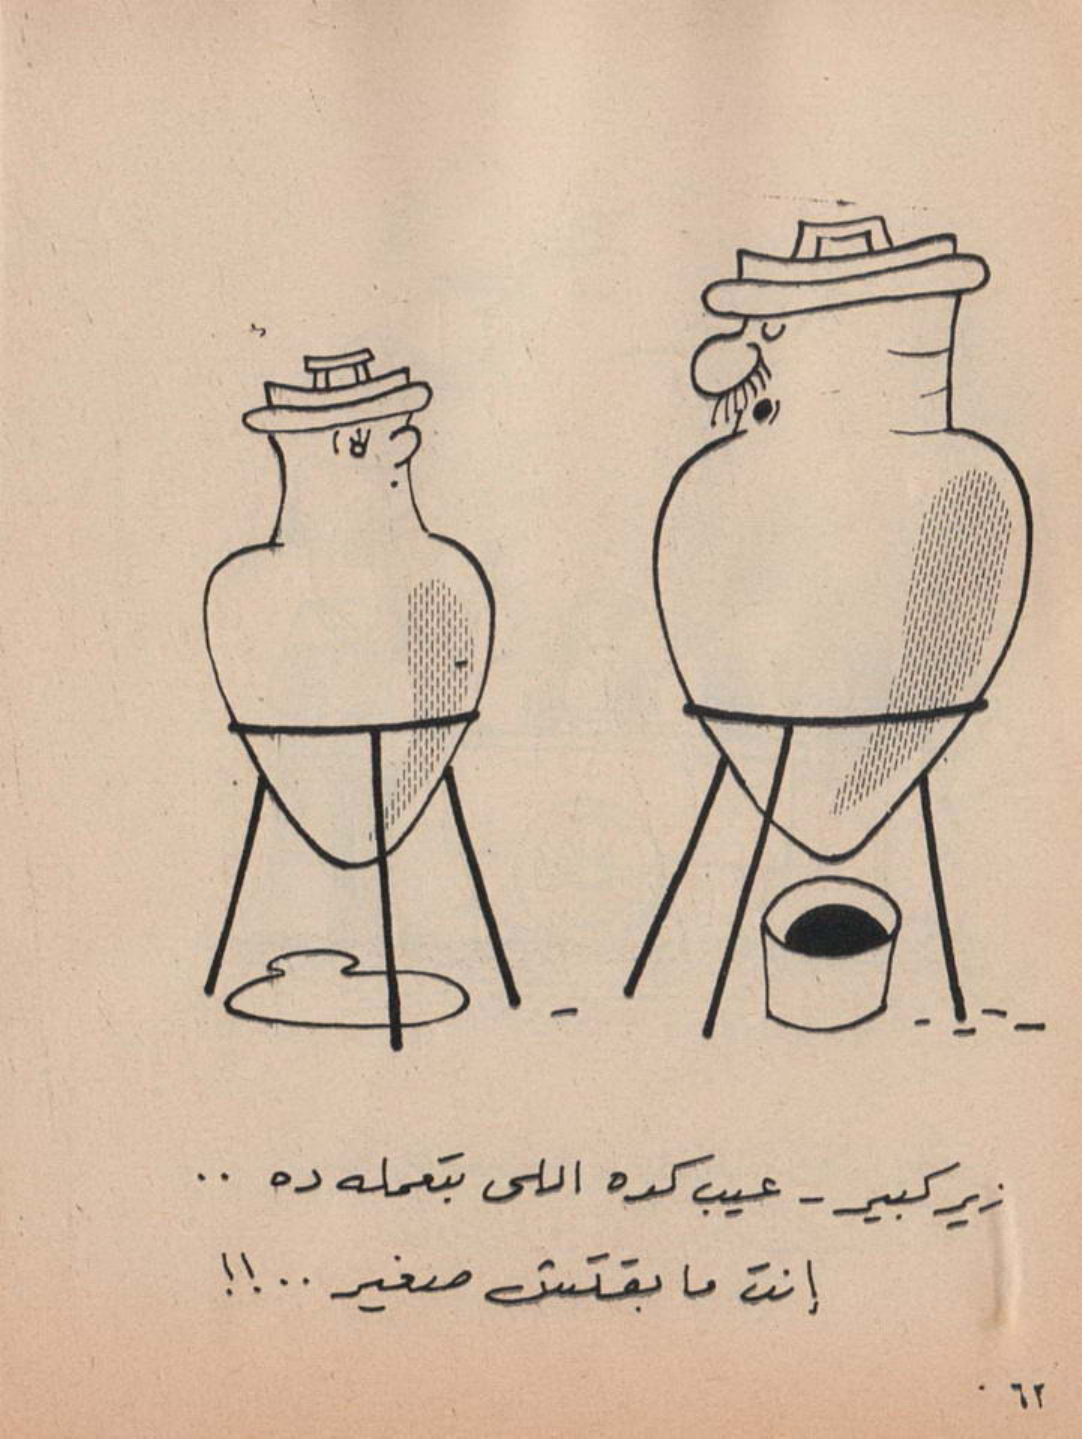 زير كبير - عيب كده اللى بتعمله ده ..
إنت ما بقتش صغير ..!!
٦٢